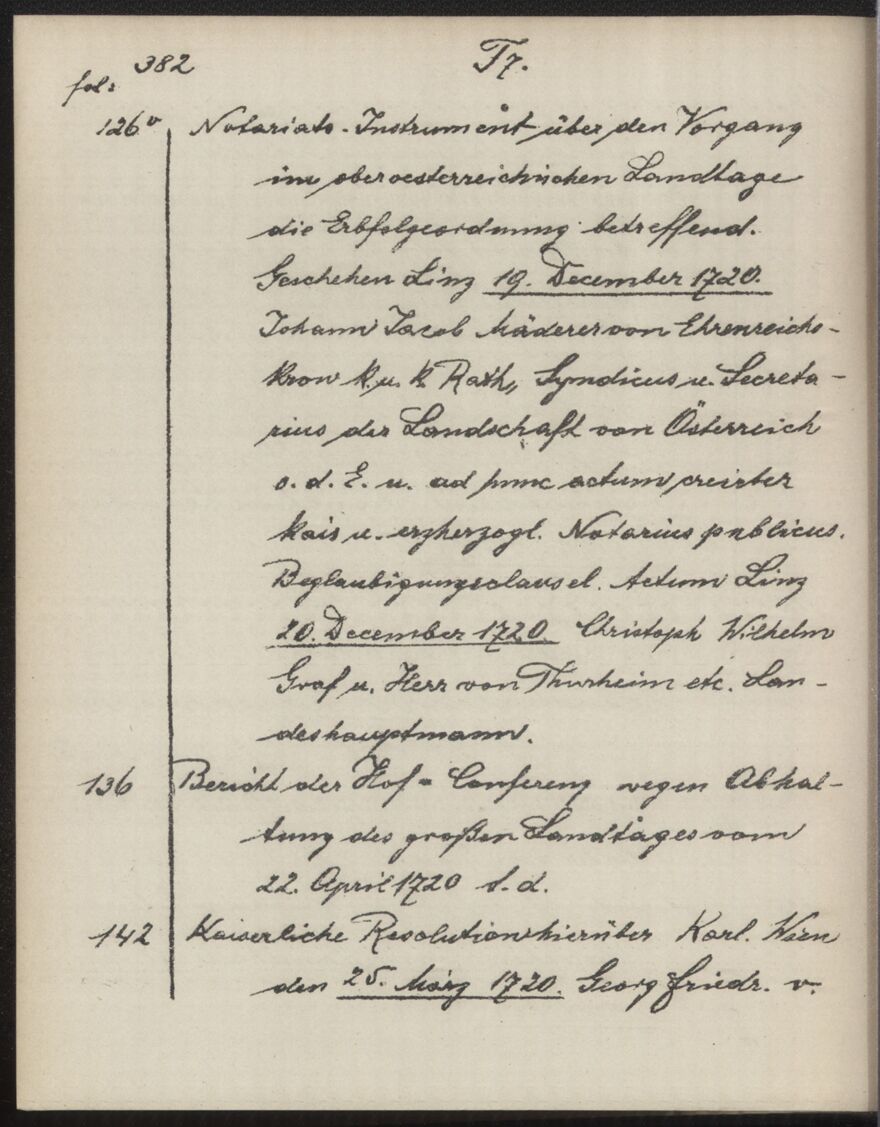 382 T7.
fol:
126v Notariats-Instrument über den Vorgang
im oberoesterreichischen Landtage
die Erbfolgeordnung betreffend.
Geschehen Linz 19. December 1720.
Johann Jacob Mäderer von Ehrenreichs-
kron k. u. k. Rath, Syndicus u. Secreta-
rius der Landschaft von Österreich
o. d. E. u. ad hunc actum creirter
kais u. erzherzogl. Notarius publicus.
Beglaubigungsclausel. Actum Linz
20. December 1720. Christoph Wilhelm
Graf u. Herr von Thürheim etc. Lan-
deshauptmann.
136 Bericht der Hof-Conferenz wegen Abhal-
tung des großen Landtages vom
22. April 1720 s. d.
142 Kaiserliche Resolution hierüber Karl. Wien
den 25. März 1720. Georg Friedr. v.